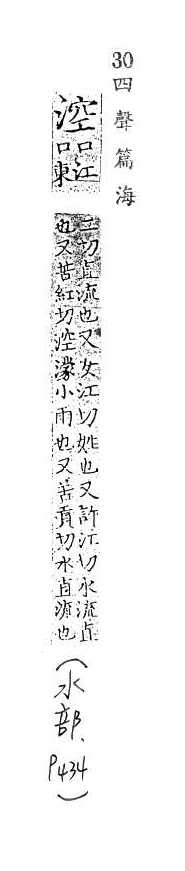 30四聲篇海
涳
口江
口東
二切直流也又女江切姓也又許江切水流直
也又苦紅切涳濛小雨也又苦貢切水直源也
(水部、P434)